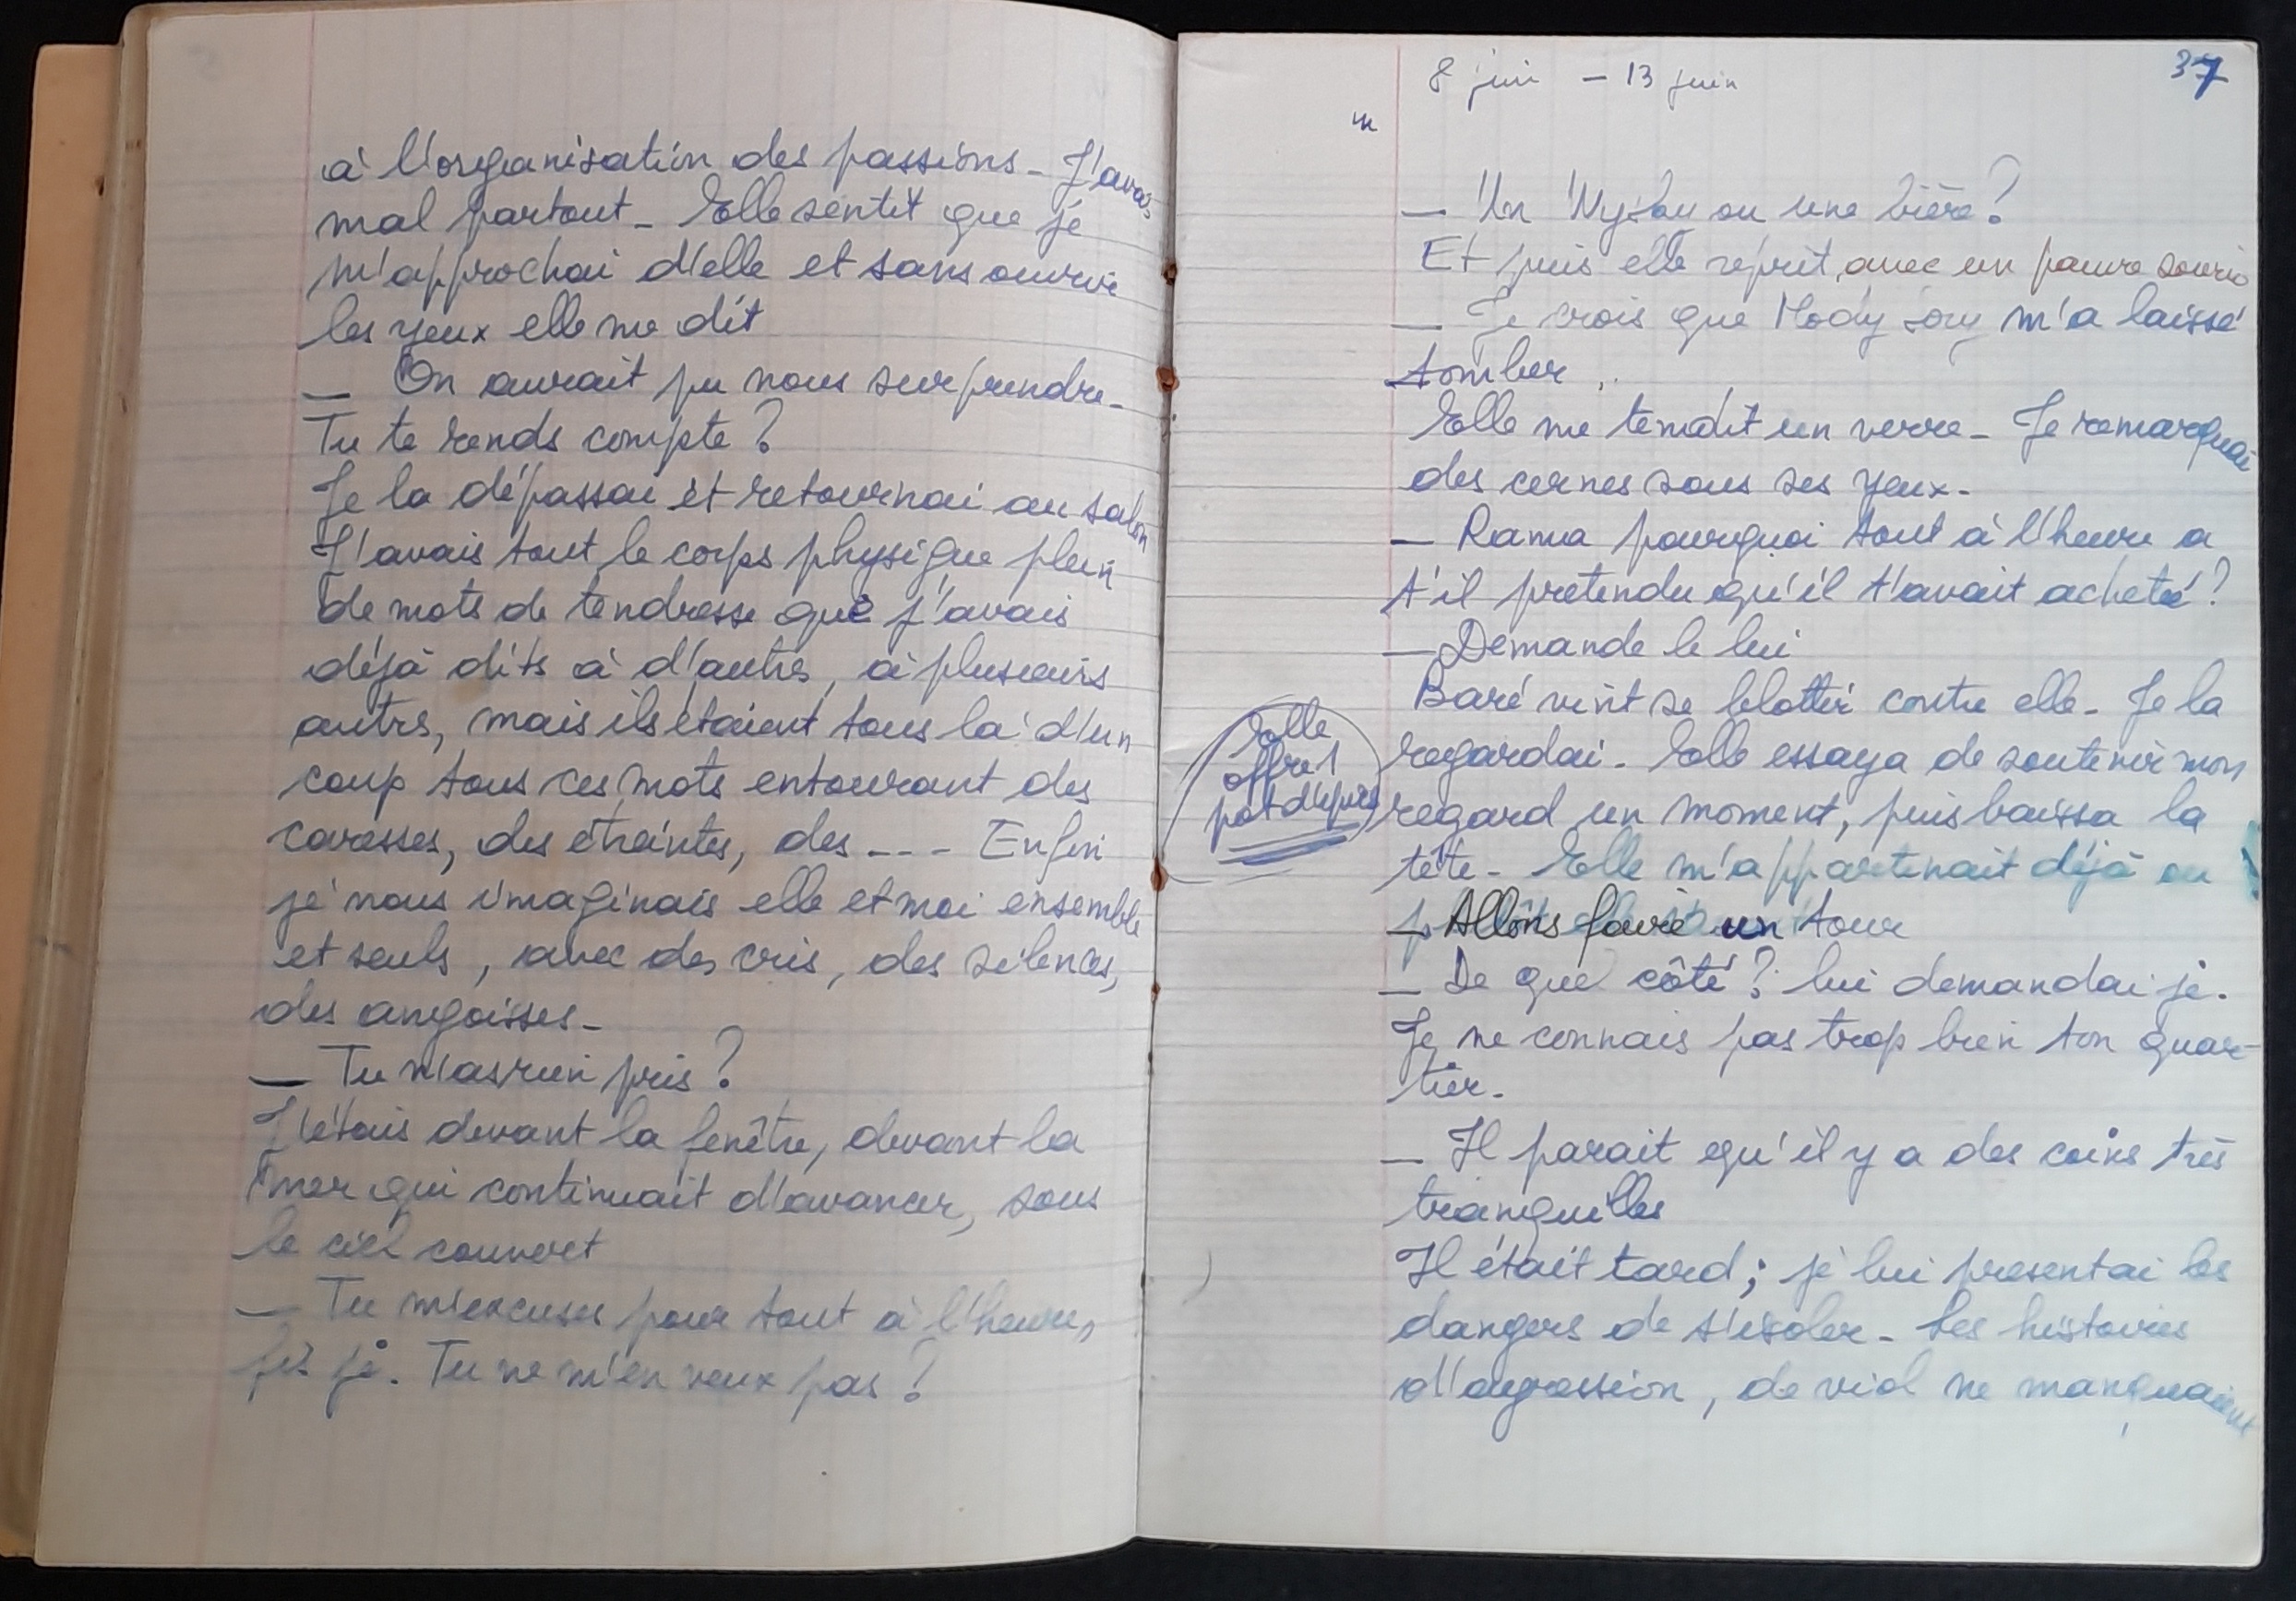 à l'organisation des passions_ J'avais
mal partout_ Elle sentit que je
m'approchai d'elle et sans ouvrir
les yeux elle me dit
_ On aurait pu nous surprendre_
Tu te rends compte ?
Je la dépassai et retournai au salon
J'avais tout le corps physique plein
de mots de tendresse que j'avais
déjà dits à d'autres, à plusieurs
autres, mais ils étaient tous là d'un
coup tous ces mots entourant des
caresses, des étreintes, des _ _ _ Enfin
je nous imaginais elle et moi ensemble
et seuls, avec des cris, des silences,
des angoisses_
_ Tu n'as rien pris ?
J'étais devant la fenêtre, devant la
mer qui continuait d'avancer, sous
le ciel couvert
_ Tu m'excuses pour tout à l'heure,
fis je. Tu ne m'en veux pas ?
8 juin — 13 juin
37
_ Un Wysky ou une bière ?
Et puis elle reprit, avec un pauvre souris
_ Je crois que Mody Sory m'a laissé
tomber ..
Elle me tendit un verre_ Je remarquai
des cernes sous ses yeux_
_ Rama pourquoi tout à l'heure a
t'il pretendu qu'il t'avait acheté ?
_ Demande le lui
Baré vint se blottir contre elle_ Je la
regardai_ Elle essaya de soutenir mon
regard un moment, puis baissa la
tête_ Elle m'appartenait déjà ou
_ Allons faire un tour
_ De quel côté ? lui demandai je.
Je ne connais pas trop bien ton quar-
tier_
_ Il parait qu'il y a des coins très
tranquilles
Il était tard ; je lui presentai les
dangers de s'isoler_ Les histoires
d'agression, de viol ne manquaient
Elle
offre 1
pot d'après